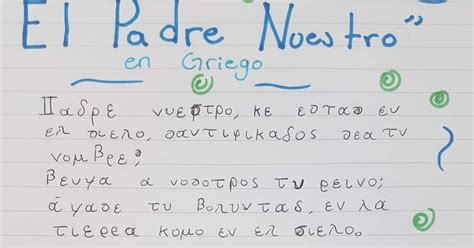 El Padre Nuestro”
en Griego
Παδρε νυεστρο, κε εστασ εν
ελ σιελο, σαντιφικαδος σεα τυ
νομβρε;
βενγα α νοσοτρος τυ ρεινο;
άγασε τυ βολυντας, εν λα
τιερρα κομο εν ελ σιελο.